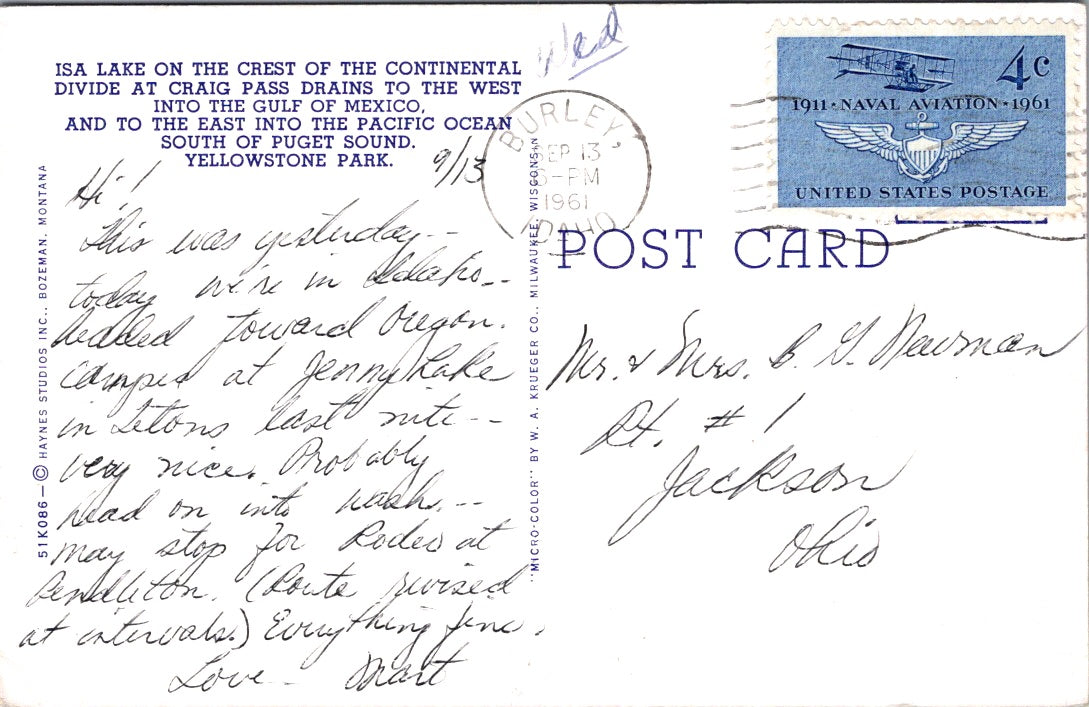 Wed
ISA LAKE ON THE CREST OF THE CONTINENTAL
DIVIDE AT CRAIG PASS DRAINS TO THE WEST
INTO THE GULF OF MEXICO,
AND TO THE EAST INTO THE PACIFIC OCEAN
SOUTH OF PUGET SOUND.
YELLOWSTONE PARK.
9/13
Hi!
This was yesterday--
today we're in Idaho--
headed toward Oregon.
Camped at Jenny Lake
in Tetons last nite--
very nice. Probably
head on into Wash.--
may stop for Rodeo at
Pendleton. (Route revised
at intervals.) Everything fine.
Love - Mart
51K086—© HAYNES STUDIOS INC., BOZEMAN, MONTANA
"MICRO-COLOR" BY W. A. KRUEGER CO., MILWAUKEE, WISCONSIN
BURLEY,
SEP 13
PM
1961
IDAHO
4c
1911·NAVAL AVIATION·1961
UNITED STATES POSTAGE
POST CARD
Mr. & Mrs. B. G. Newman
Rt. # 1
Jackson
Ohio